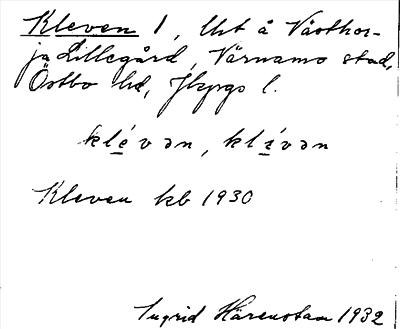 Kleven 1, Uht å Västhor-
ja Lillegård, Värnamo stad,
Östbo hd, Jkpgs l.
klévən, klívən
Kleven kb 1930
Ingrid Härenstam 1932